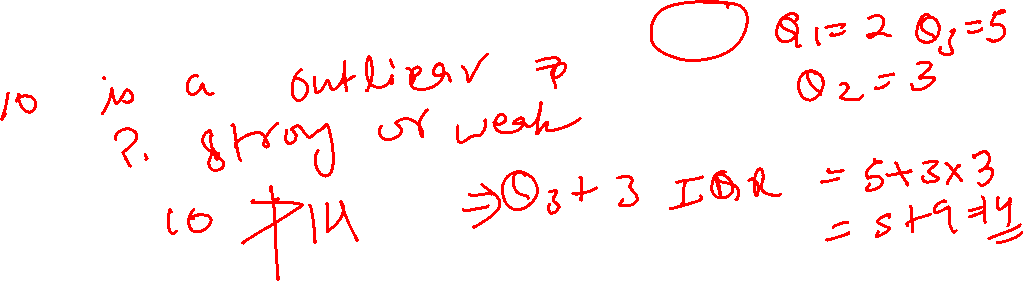 Q1 = 2 Q3 = 5
Q2 = 3
10 is a outlier ⇒
?. strong or weak
⇒ Q3 + 3 IQR = 5+3×3
= 5+9=14
10 ≯ 14